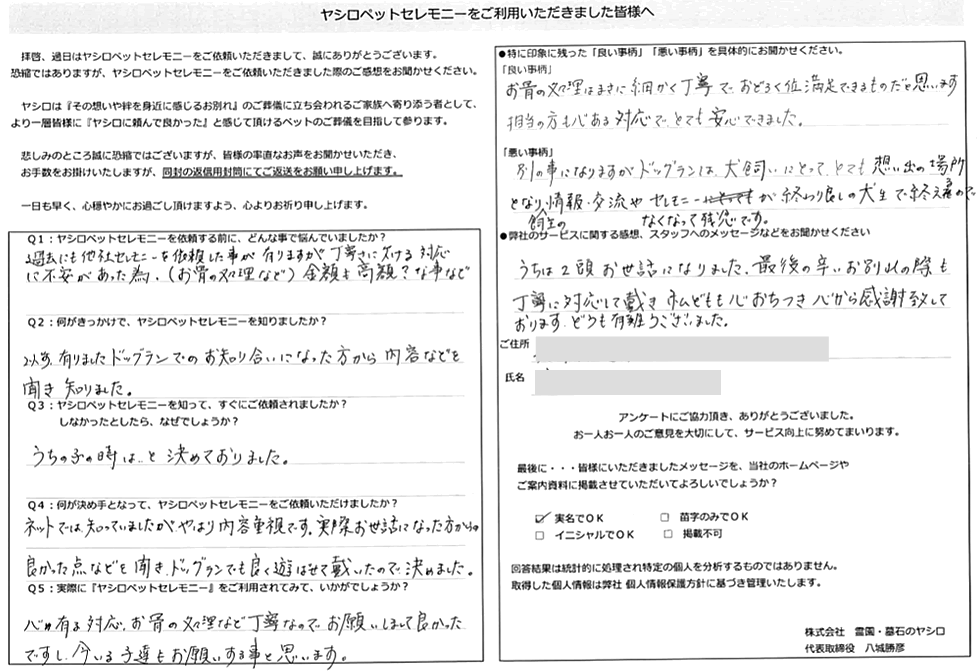 ヤシロペットセレモニーをご利用いただきました皆様へ
拝啓、過日はヤシロペットセレモニーをご依頼いただきまして、誠にありがとうございます。
恐縮ではありますが、ヤシロペットセレモニーをご依頼いただきました際のご感想をお聞かせください。
ヤシロは『その想いや絆を身近に感じるお別れ』のご葬儀に立ち会われるご家族へ寄り添う者として、
より一層皆様に『ヤシロに頼んで良かった』と感じて頂けるペットのご葬儀を目指して参ります。
悲しみのところ誠に恐縮ではございますが、皆様の率直なお声をお聞かせいただき、
お手数をお掛けいたしますが、同封の返信用封筒にてご返送をお願い申し上げます。
一日も早く、心穏やかにお過ごし頂けますよう、心よりお祈り申し上げます。
Q1：ヤシロペットセレモニーを依頼する前に、どんな事で悩んでいましたか？
過去にも他社セレモニーを依頼した事が有りますが丁寧さに欠ける対応
に不安があった為、(お骨の処理など)金額も高額？な事など
Q2：何がきっかけで、ヤシロペットセレモニーを知りましたか？
以前、有りましたドッグランでのお知り合いになった方から内容などを
聞き知りました。
Q3：ヤシロペットセレモニーを知って、すぐにご依頼されましたか？
しなかったとしたら、なぜでしょうか？
うちの子の時は…と決めておりました。
Q4：何が決め手となって、ヤシロペットセレモニーをご依頼いただけましたか？
ネットでは知っていましたが、やはり内容重視です。実際お世話になった方からの
良かった点などを聞き、ドッグランでも良く遊ばせて戴いたので決めました。
Q5：実際に『ヤシロペットセレモニー』をご利用されてみて、いかがでしょうか？
心有る対応、お骨の処理など丁寧なのでお願いしまして良かった
ですし、今いる子達もお願いする事と思います。
●特に印象に残った「良い事柄」「悪い事柄」を具体的にお聞かせください。
「良い事柄」
お骨の処理はまさに細かく丁寧で、おどろく位満足できるものだと思います
担当の方も心ある対応で、とても安心できました。
「悪い事柄」
別の事になりますがドッグランは、犬飼いにとって、とても想い出の場所
となり、情報、交流やセレモニーが終わり良しの犬生で終える
飼主の なくなって残念です。
●弊社のサービスに関する感想、スタッフへのメッセージなどをお聞かせください
うちは2頭お世話になりました、最後の辛いお別れの際も
丁寧に対応して戴き私どもも心おちつき心から感謝致して
おります。どうも有難うございました。
ご住所
氏名
アンケートにご協力頂き、ありがとうございました。
お一人お一人のご意見を大切にして、サービス向上に努めてまいります。
最後に・・・皆様にいただきましたメッセージを、当社のホームページや
ご案内資料に掲載させていただいてよろしいでしょうか？
☑ 実名でOK □ 苗字のみでOK
□ イニシャルでOK □ 掲載不可
回答結果は統計的に処理され特定の個人を分析するものではありません。
取得した個人情報は弊社 個人情報保護方針に基づき管理いたします。
株式会社 霊園・墓石のヤシロ
代表取締役 八城勝彦